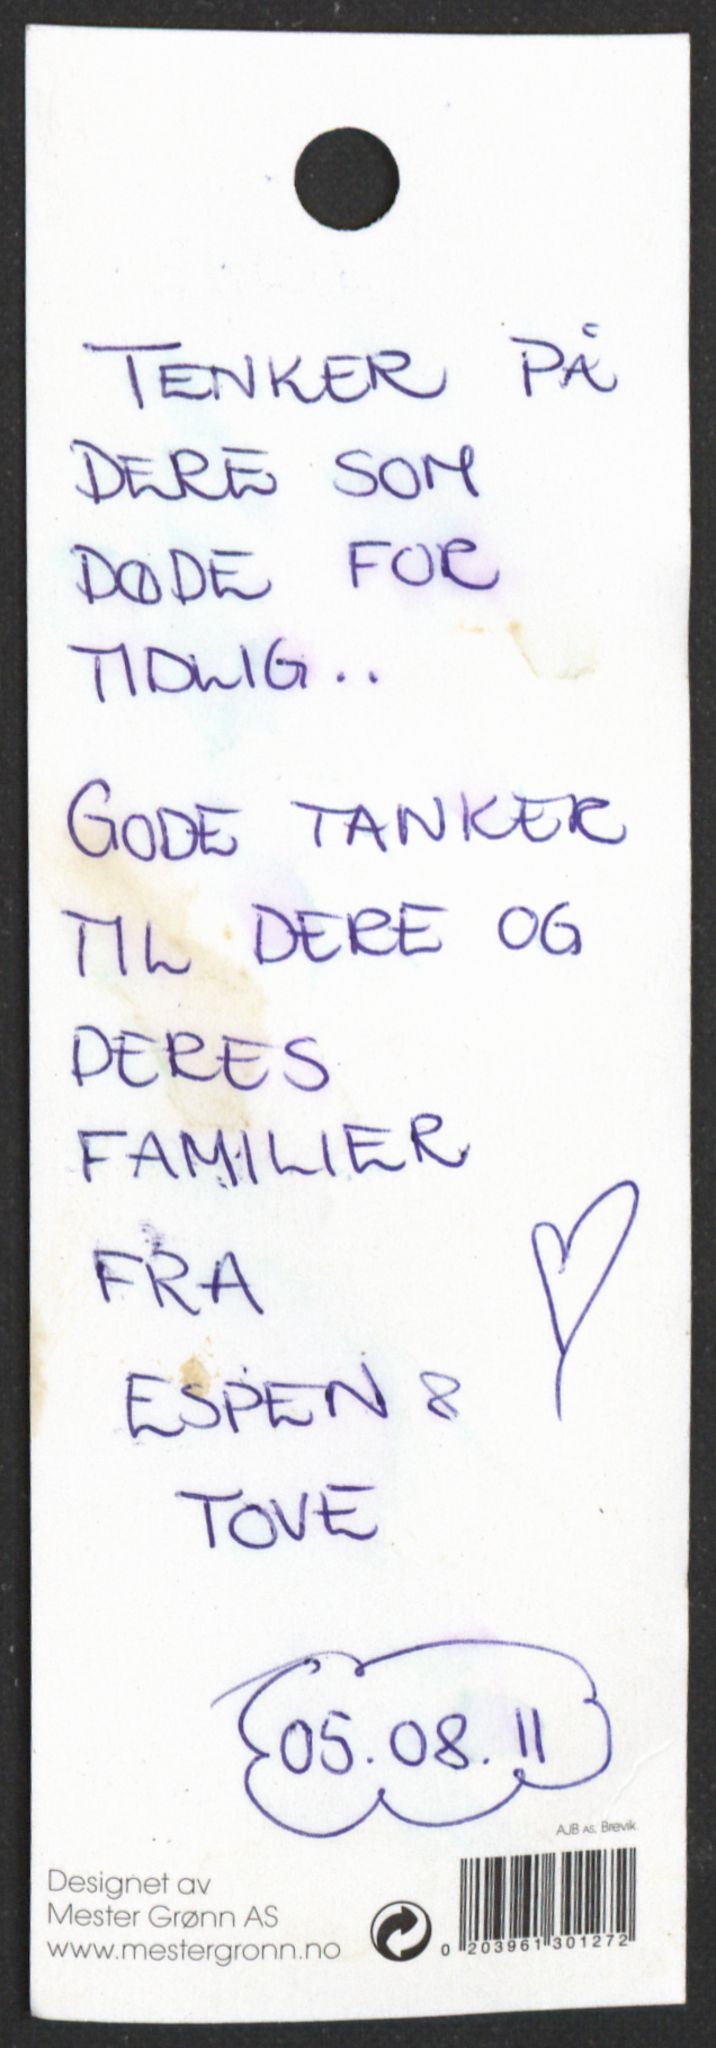 TENKER PÅ
DERE SOM
DØDE FOR
TIDLIG..
GODE TANKER
TIL DERE OG
DERES
FAMILIER
FRA
ESPEN &
TOVE
05.08.11
AJB AS. Brevik.
Designet av
Mester Grønn AS
www.mestergronn.no
0 203961 301272